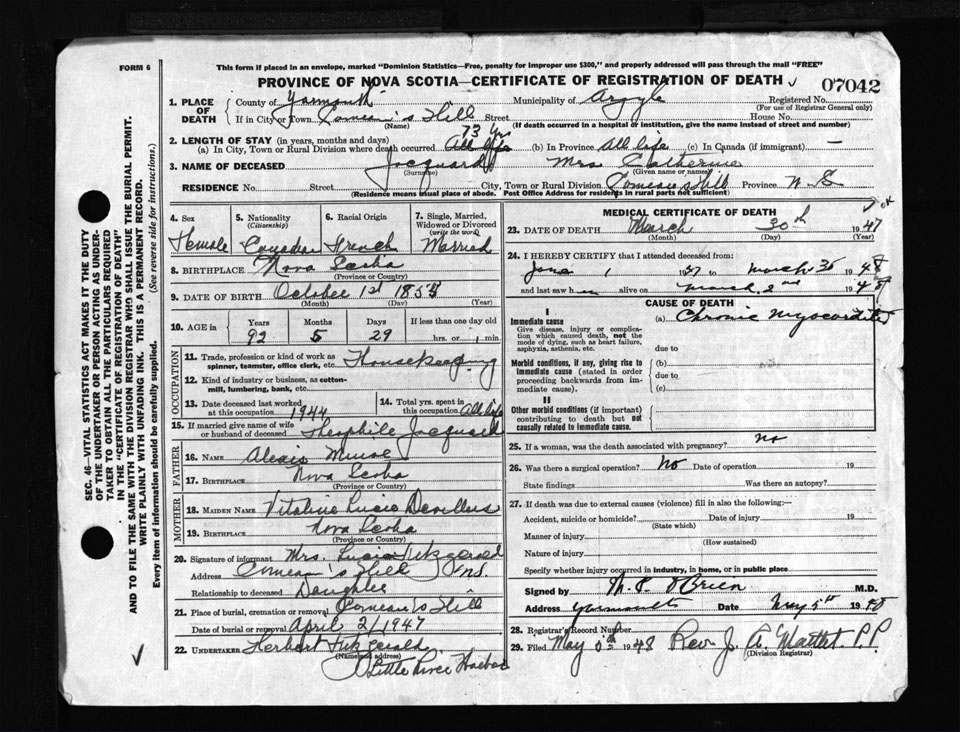 FORM 6
This form if placed in an envelope, marked "Dominion Statistics—Free, penalty for improper use $300," and properly addressed will pass through the mail "FREE"
PROVINCE OF NOVA SCOTIA—CERTIFICATE OF REGISTRATION OF DEATH
07042
SEC. 46—VITAL STATISTICS ACT MAKES IT THE DUTY
OF THE UNDERTAKER OR PERSON ACTING AS UNDER-
TAKER TO OBTAIN ALL THE PARTICULARS REQUIRED
IN THE "CERTIFICATE OF REGISTRATION OF DEATH"
AND TO FILE THE SAME WITH THE DIVISION REGISTRAR WHO SHALL ISSUE THE BURIAL PERMIT.
WRITE PLAINLY WITH UNFADING INK. THIS IS A PERMANENT RECORD.
Every item of information should be carefully supplied. (See reverse side for instructions.)
1. PLACE OF DEATH County of Yarmouth Municipality of Argyle Registered No.
(For use of Registrar General only)
If in City or Town Comeau's Hill Street House No.
(Name) (If death occurred in a hospital or institution, give the name instead of street and number)
2. LENGTH OF STAY (in years, months and days) 73 yrs
(a) In City, Town or Rural Division where death occurred All life (b) In Province All life (c) In Canada (if immigrant) —
3. NAME OF DECEASED Jacquard Mrs Catherine
(Surname) (Given name or names)
RESIDENCE No. Street City, Town or Rural Division Comeau's Hill Province N-S
(Residence means usual place of abode. Post Office Address for residents in rural parts not sufficient)
4. Sex Female
5. Nationality (Citizenship) Canadian
6. Racial Origin French
7. Single, Married, Widowed or Divorced (write the word) Married
8. BIRTHPLACE Nova Scotia
(Province or Country)
9. DATE OF BIRTH October 1st 1854
(Month) (Day) (Year)
10. AGE in Years Months Days If less than one day old
92 5 29 hrs. or min.
OCCUPATION
11. Trade, profession or kind of work as spinner, teamster, office clerk, etc. Housekeeping
12. Kind of industry or business, as cotton-mill, lumbering, bank, etc.
13. Date deceased last worked at this occupation 1944
14. Total yrs. spent in this occupation All life
15. If married give name of wife or husband of deceased Theophile Jacquard
FATHER
16. Name Alexis Muise
17. Birthplace Nova Scotia
(Province or Country)
MOTHER
18. Maiden Name Vitaline Lucie Devillers
19. Birthplace Nova Scotia
(Province or Country)
20. Signature of informant Mrs. Lucie Fitzgerald
Address Comeau's Hill N.S.
Relationship to deceased Daughter
21. Place of burial, cremation or removal Comeau's Hill
Date of burial or removal April 2/1947
22. UNDERTAKER Herbert Fitzgerald
(Name and address)
Little River Harbor
MEDICAL CERTIFICATE OF DEATH
23. DATE OF DEATH March 30th 1947
(Month) (Day) (Year)
24. I HEREBY CERTIFY that I attended deceased from:
June 1 1927 to March 30 1948
and last saw her alive on March 2nd 1948
CAUSE OF DEATH
I
Immediate cause (a) Chronic myocarditis
Give disease, injury or complication which caused death, not the mode of dying, such as heart failure, asphyxia, asthenia, etc.
due to
Morbid conditions, if any, giving rise to immediate cause (stated in order proceeding backwards from immediate cause).
(b)
due to
(c)
II
Other morbid conditions (if important) contributing to death but not causally related to immediate cause.
25. If a woman, was the death associated with pregnancy? no
26. Was there a surgical operation? No Date of operation 19
State findings Was there an autopsy?
27. If death was due to external causes (violence) fill in also the following:—
Accident, suicide or homicide? Date of injury 19
(State which)
Manner of injury
(How sustained)
Nature of injury
Specify whether injury occurred in industry, in home, or in public place
Signed by O'Brien M.D.
Address Yarmouth Date May 5th 1948
28. Registrar's Record Number
29. Filed May 1948 Rev. J. A. P.P.
(Division Registrar)